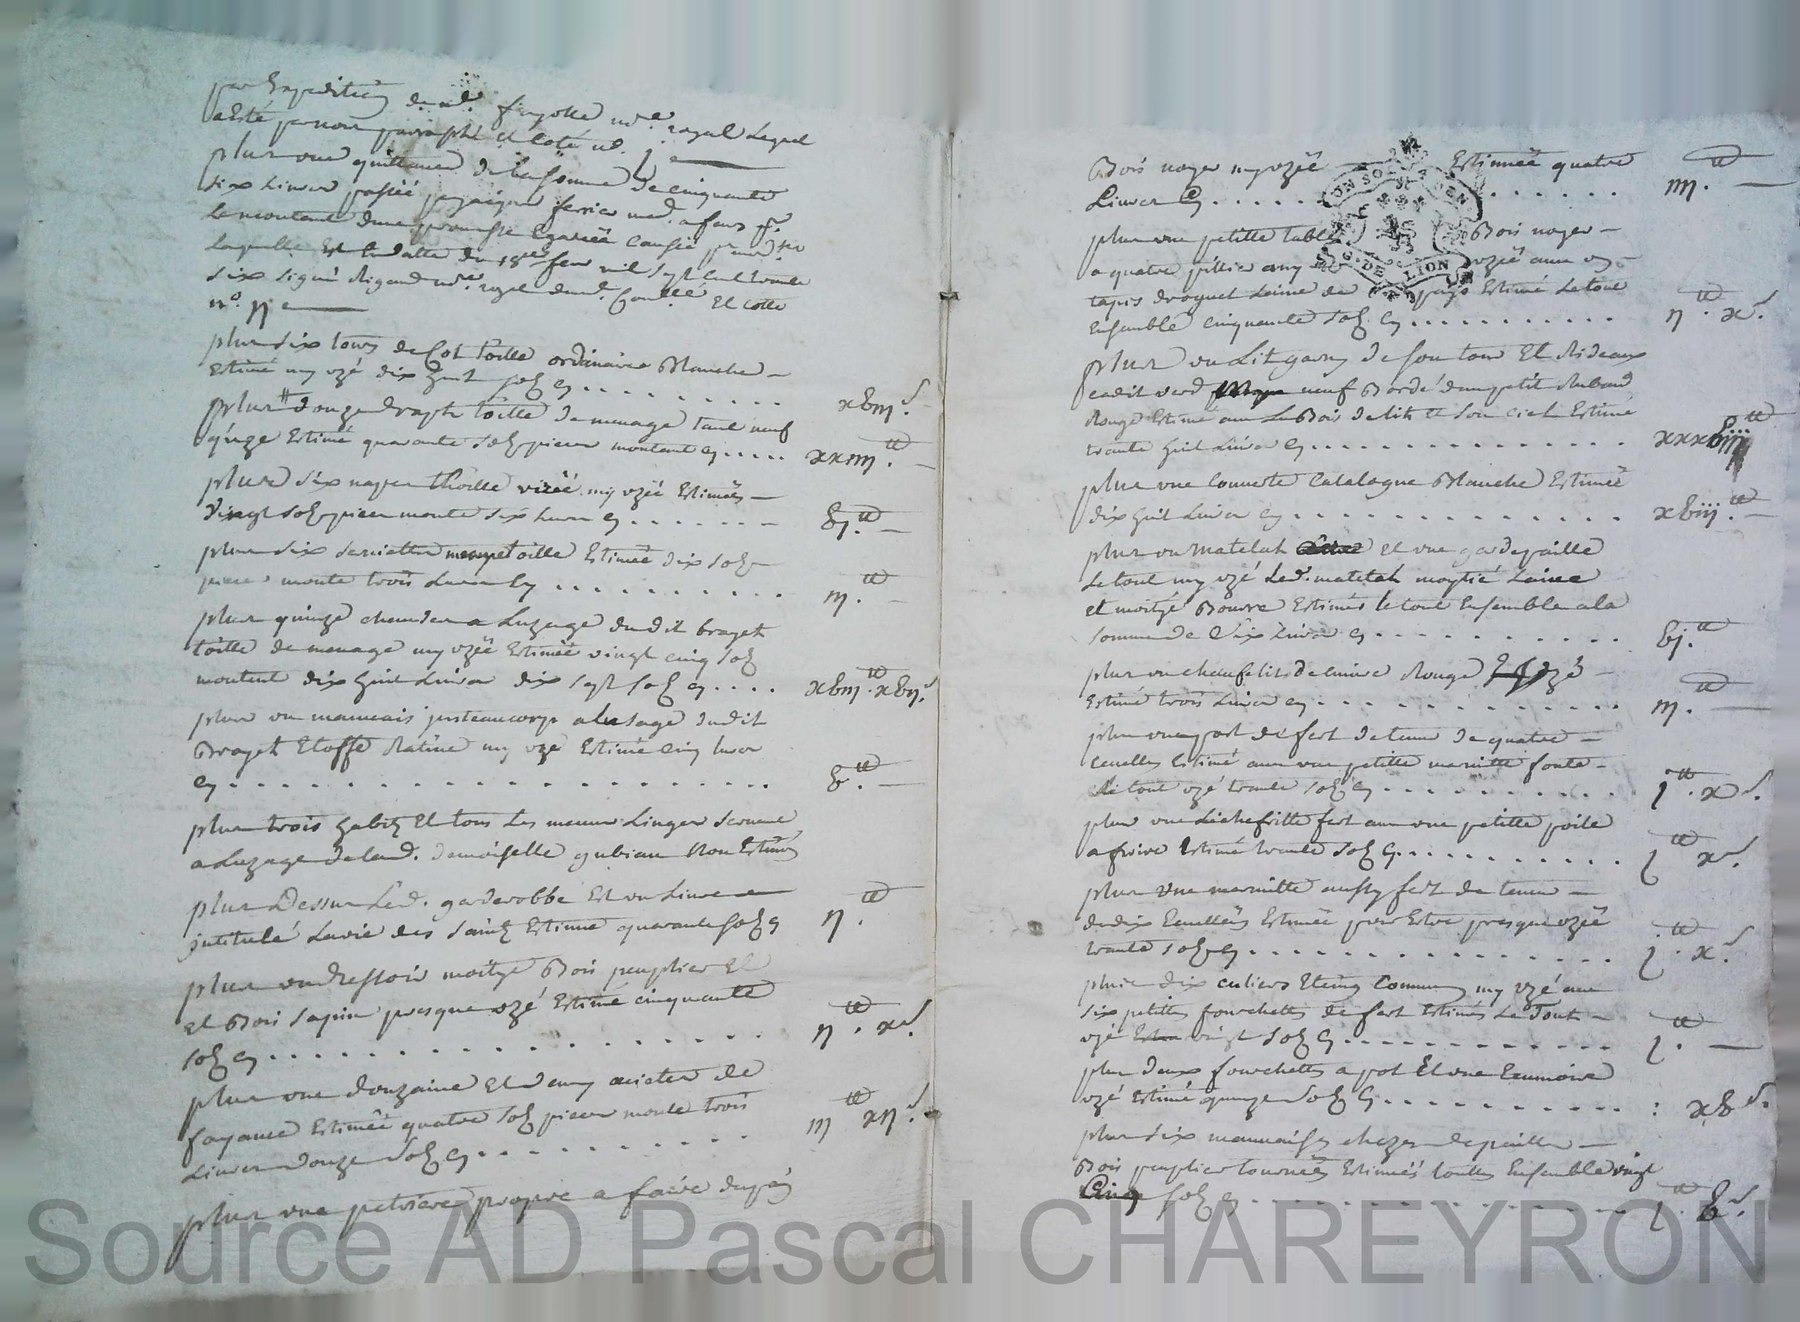 par Expedition de md. fayolle nore. royal lequel
a Esté par nous paraphé et Coté no. j.
plus une quittance de la somme de cinquante
six Livres passée
le montant dune promesse Egarée Causée
laquelle Est en datte du 18e. fevr mil sept cent trante
six signé Rigaud nore. royal El cotté
no. ij
plus six tours de Col toille ordinaire Blanche
Estimé my uzé dix huit solz cy . . . . . . . . . . xbiij s.
plus douze draptz toille de menage tant neuf
qu'uze Estimé quarante solz piece montent cy . . . . . xxiiij. tt
plus six napes thoille my uzéé Estimées
vingt solz piece monte six livres cy . . . . . . . bj. tt
plus six serviettes mesme toille Estimée dix solz
piece monte trois Livres Cy . . . . . . . . . . iij. tt
plus quinze chemises a Luzage dudit brayet
toille de menage my uzéé Estimée vingt cinq solz
montent dix huit Livres dix sept solz cy . . . . xbiij. tt xbij. s
plus un mauvais justeaucorps a lusage dudit
Brayet Etoffe Ratine my uzé Estimé cinq livres
cy . . . . . . . . . . . . . . . . . . . b. tt
plus trois habitz Et tous Les menus Linges servant
a Luzage de lad. demoiselle gubian Non Estimés
plus Dessus Led. garderobbe Est un Livre
jntitulé Lavie des Saintz Estimé quarante solz cy ij. tt
plus un dressoir moityé Bois peuplier Et
et Bois sapin presque uzé Estimé cinquante
solz cy . . . . . . . . . . . . . . . . . . ij. tt x s.
plus une douzaine Et demy acietes de
fayance Estimée quatre solz piece monte trois
Livres douze solz cy . . . . . . . . . iij tt xij. s
plus une petriere propre a faire du pain
Bois noyer my uzéé Estimméé quatre
Livres Cy . . . . . . . . . . . . iiij. tt
plus une petitte table Bois noyer
a quatre pillier my uzéé avec un
tapis droguet Laine de pays Estimé Le tout
Ensemble cinquante solz cy . . . . . . . . . . . ij. tt x. s
plus un Lit garny de son tour Et Rideaux
cadit verd neuf Bordé dun petit Ruband
Rouge Estimé avec Le Bois de lits Et son ciel Estimé
trante huit Livres cy . . . . . . . . . . . . . . xxxbiij tt
plus une Couverte Catalogne Blanche Estimée
dix huit Livres cy . . . . . . . . . . . . . . xbiij. tt
plus un Matelah et une gardepaille
Le tout my uzé Led. matelah moytié Laine
et moityé Bourre Estimés le tout Ensemble ala
somme de Six Livres cy . . . . . . . . . . bj. tt
plus un chaufelits de cuivre Rouge uzé
Estimé trois Livres cy . . . . . . . . . . . . . iij. tt
plus un pot de fert de tenue de quatre
ecuelles Estimé avec une petitte marmitte fonte
Le tout uzé trante solz cy . . . . . . . . . . . j. tt x s.
plus une Lichefritte fert avec une petitte poile
a frire Estimé trante solz cy . . . . . . . . . . j tt x s.
plus Une marmitte aussy fert de tenue
de dix Ecuelléés Estiméé pour Estre presque uzéé
trante solz cy . . . . . . . . . . . . . . . j. tt x. s
plus dix culiers Etaing Commun my uzé avec
six petittes fourchettes de fert Estimés Le Tout
uzé vingt solz Cy . . . . . . . . . . . . j. tt
plus deux fourchettes a pot Et une Ecumoire
uzé Estimé quinze solz Cy . . . . . . . . . . . : xb s.
plus six mauvaises chezes de paille
Bois peuplier tournéés Estimés touttes Ensemble vingt
Cinq solz cy . . . . . . . . . . . . . . . . j. tt b s.
G. DE LION
Source AD Pascal CHAREYRON